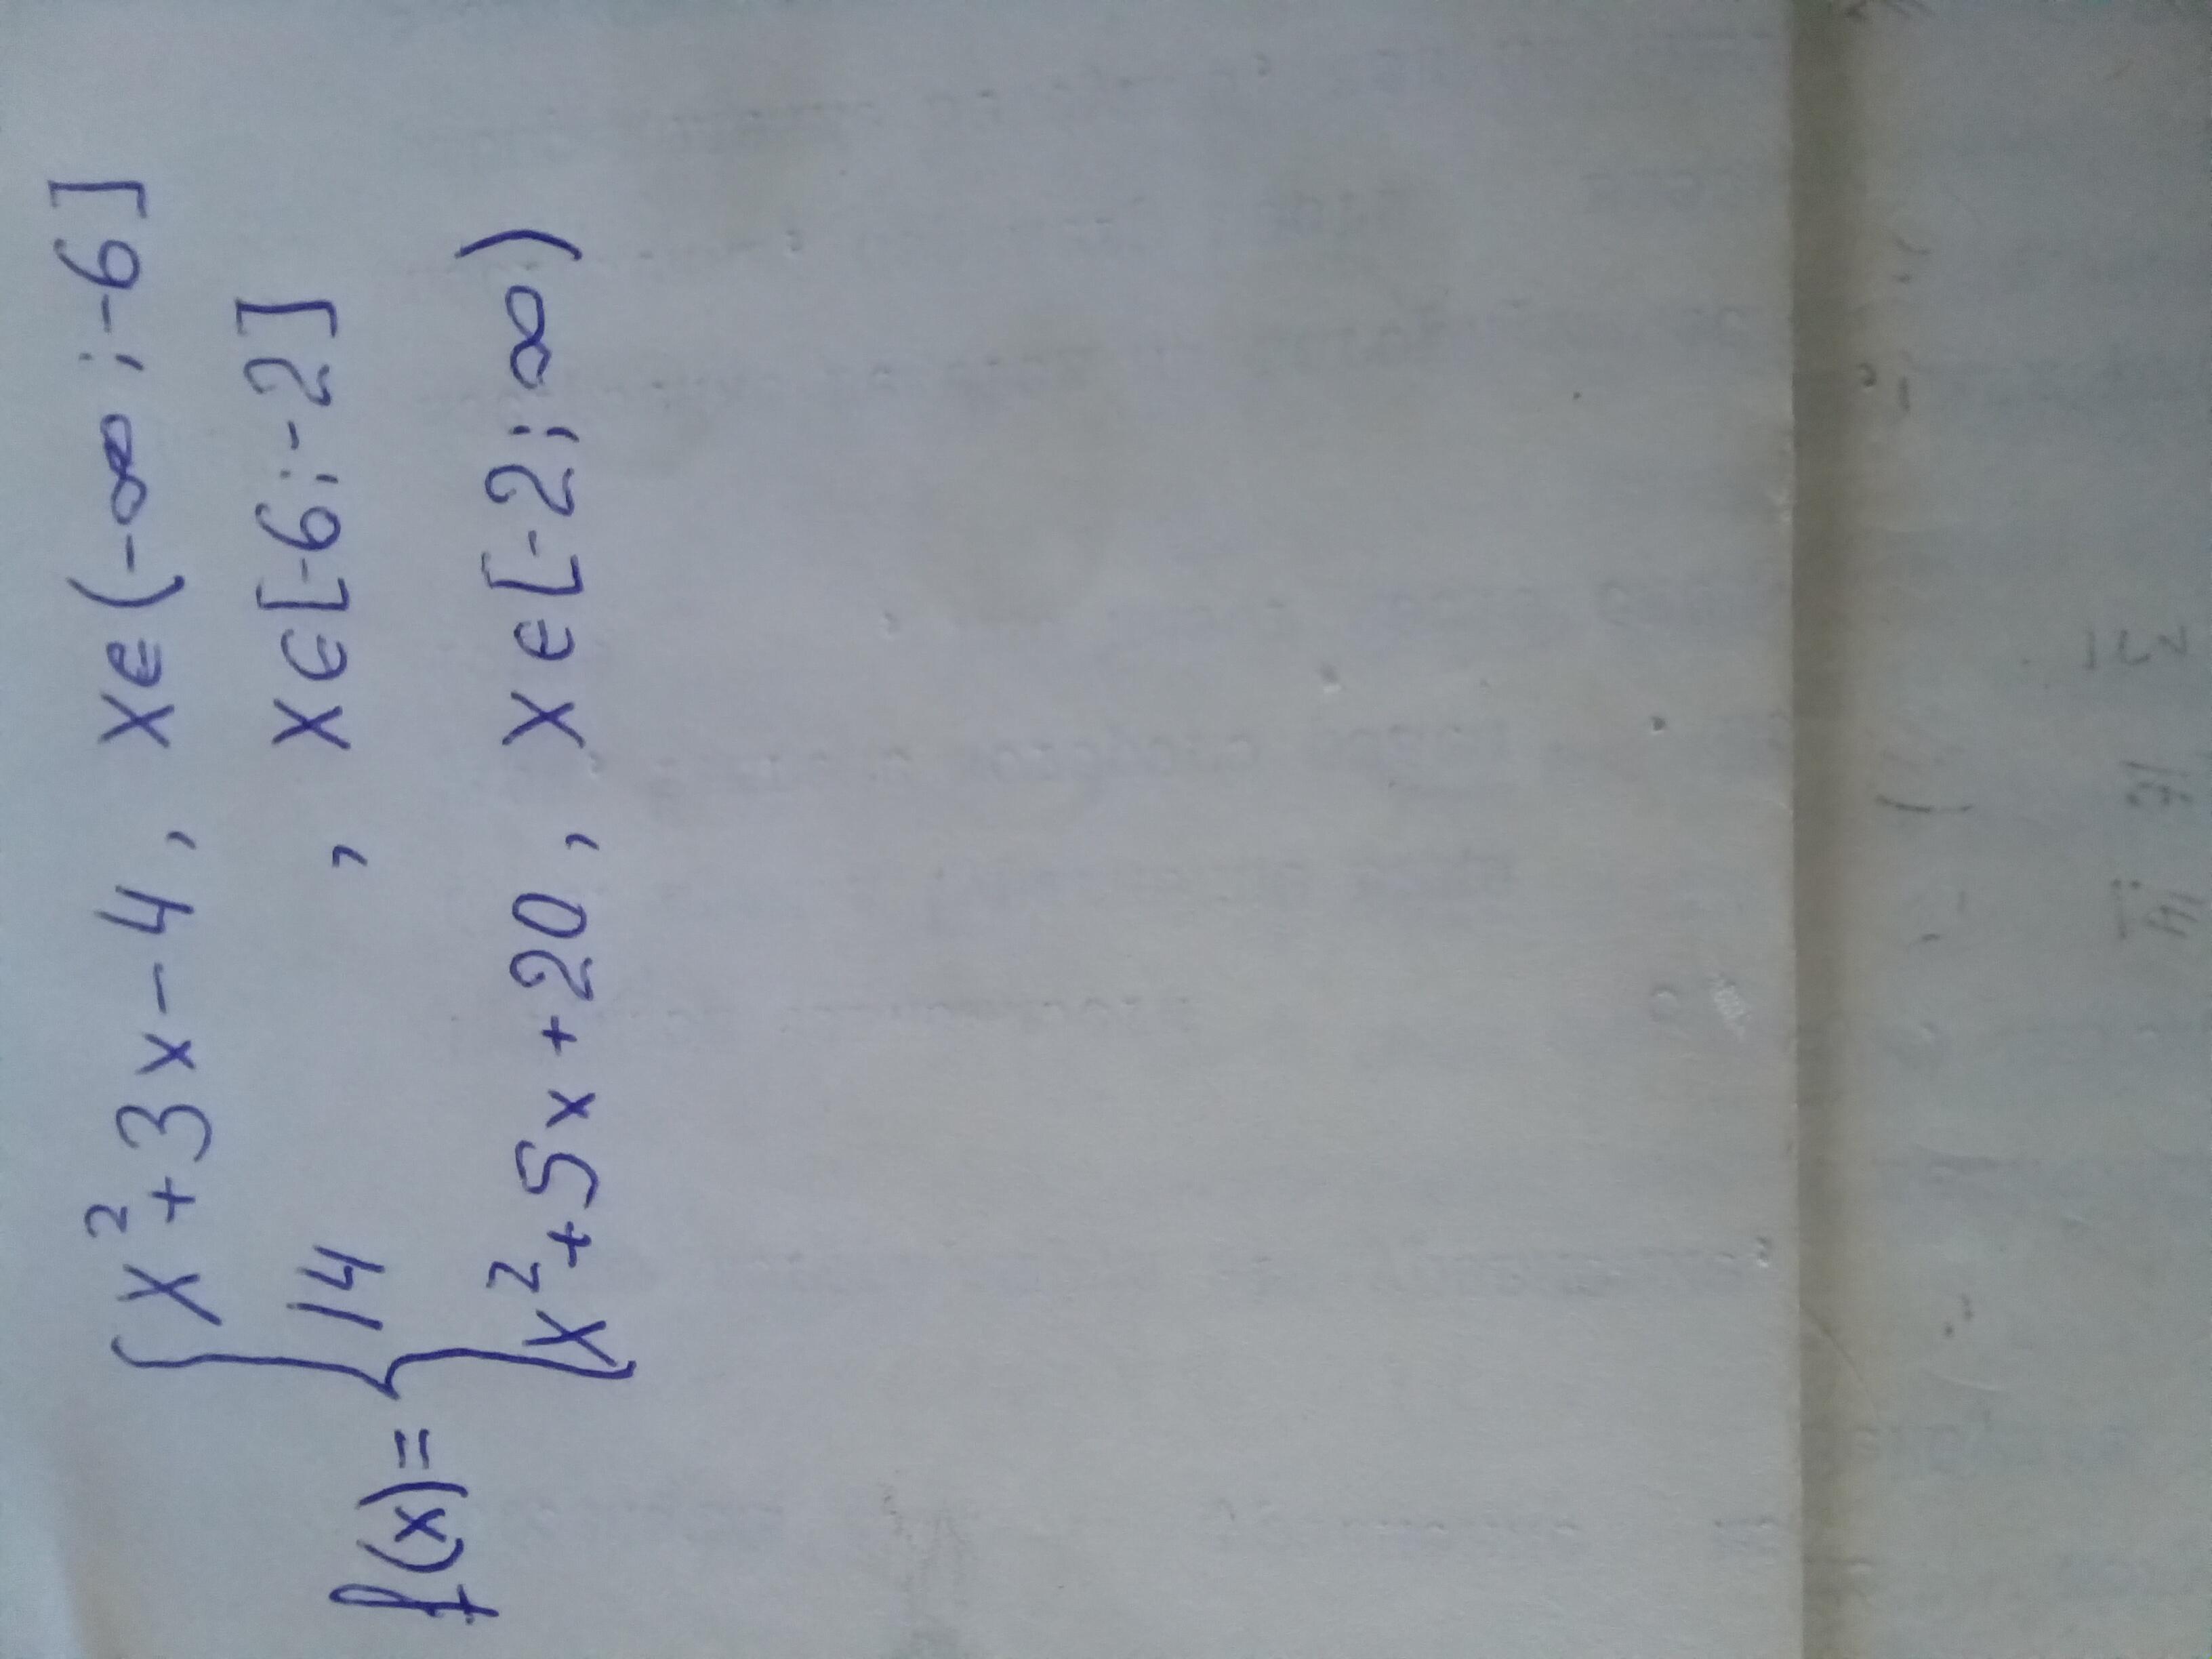 x²+3x-4, x∈(-∞;-6]
14 , x∈[-6;-2]
f(x)=
x²+5x+20, x∈[-2;∞)